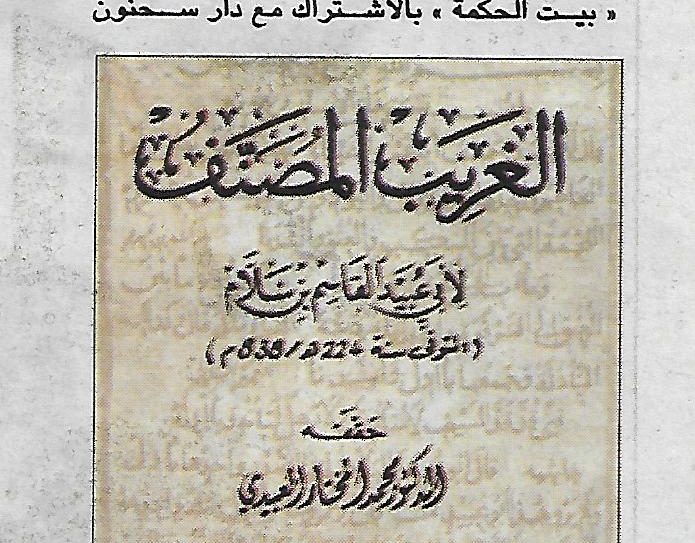 « بيـت الحكمة » بالاشتراك مع دار سـحنون
الغَرِيبُ المُصَنَّفُ
لأبي عُبَيْد القَاسِم بْن سَلاَّم
(المتوفى سنة 224 هـ/838م)
حَقَّقَه
الدكتور محمد المختار العبيدي